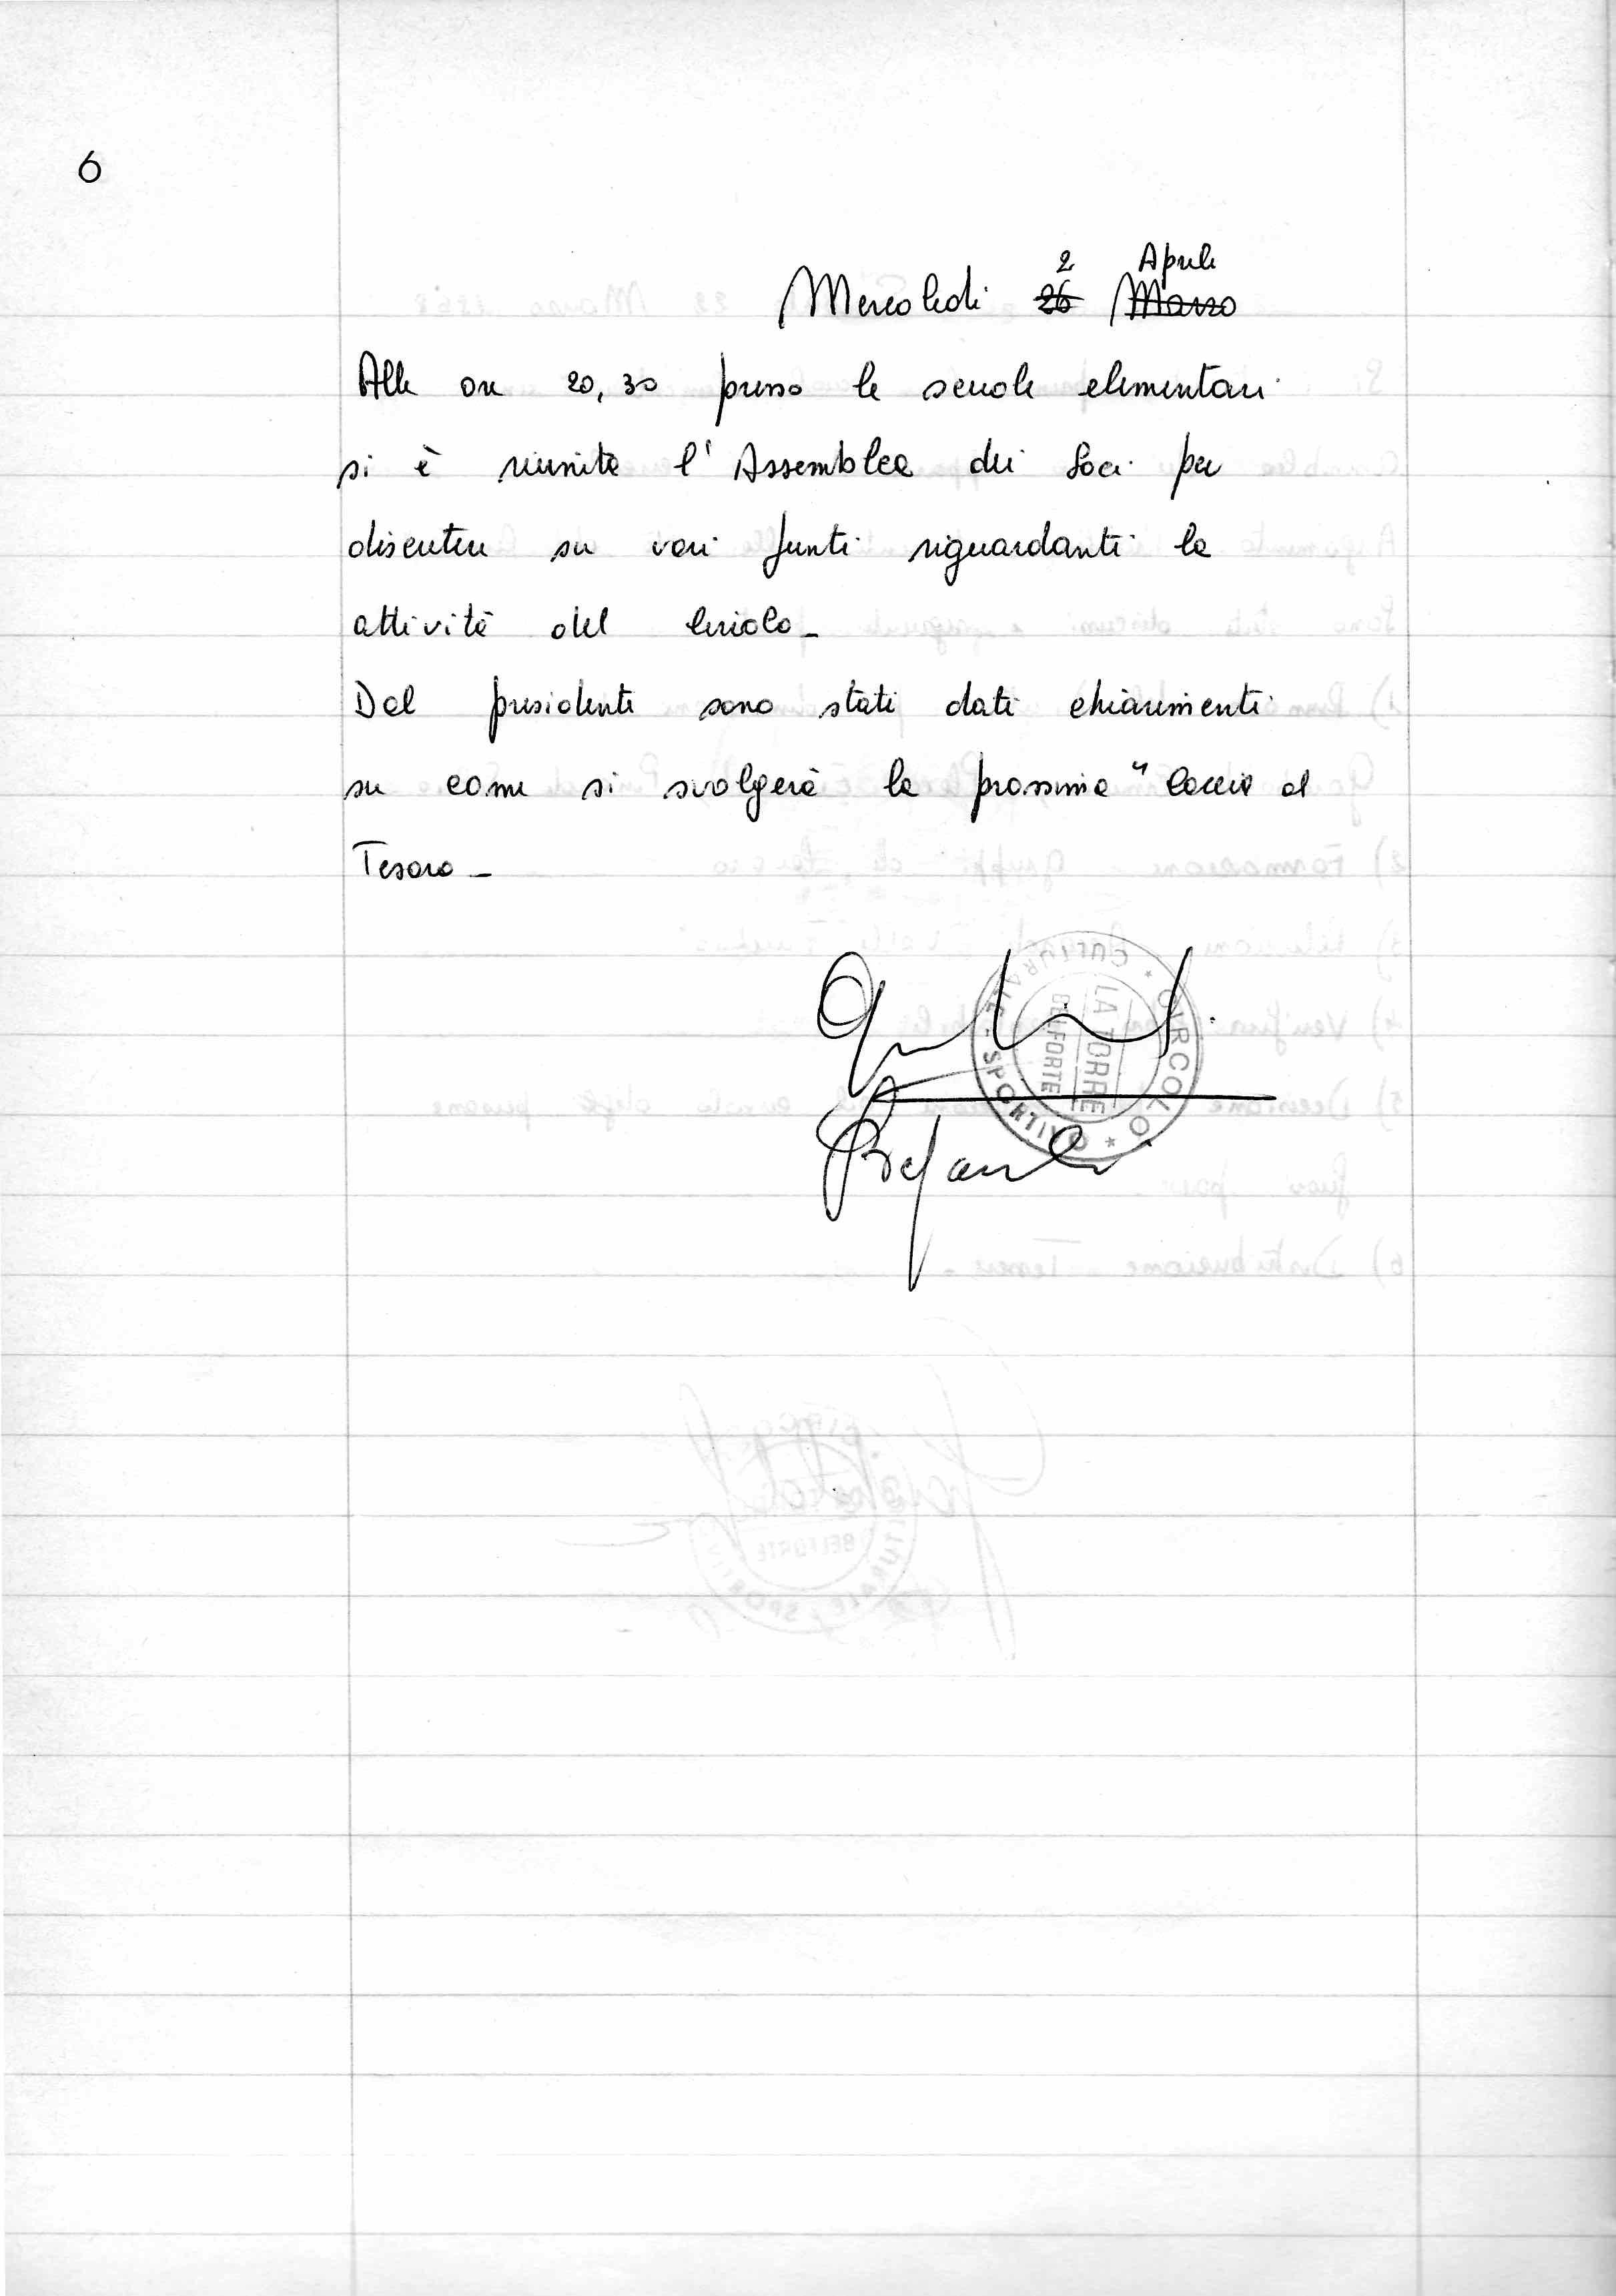 6
2 Aprile
Mercoledi 26 Marzo
Alle ore 20,30 presso le scuole elementari
si è riunita l'Assemblea dei Soci per
discutere su vari punti riguardanti la
attività del Circolo_
Dal presidente sono stati dati chiarimenti
su come si svolgerà la prossima "Caccia al
Tesoro_
CIRCOLO * CULTURALE - SPORTIVO *
LA TORRE
BELFORTE